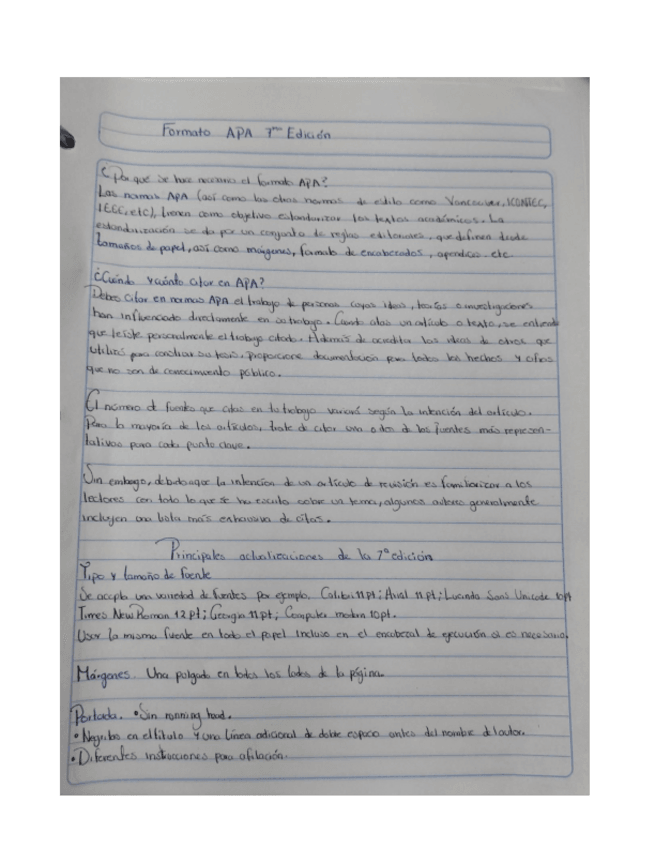 Formato APA 7ma Edición
¿Por qué se hace necesario el formato APA?
Las normas APA (así como las otras normas de estilo como Vancouver, ICONTEC,
IEEE, etc), tienen como objetivo estandarizar los textos académicos. La
estandarización se da por un conjunto de reglas editoriales, que definen desde
tamaños de papel, así como márgenes, formato de encabezados, apendice etc
¿Cuándo y cuánto citar en APA?
Debes citar en normas APA el trabajo de personas cuyas ideas, teorías o investigaciones
han influenciado directamente en su trabajo. Cuando citas un artículo o texto, se entiende
que leíste personalmente el trabajo citado. Además de acreditar las ideas de otros que
utilizó para construir su tesis, proporcione documentación para todos los hechos y cifras
que no son de conocimiento público.
El número de fuentes que citas en tu trabajo variará según la intención del artículo.
Para la mayoría de los artículos, trate de citar una o dos de las fuentes más represen-
tativas para cada punto clave.
Sin embargo, debido a que la intención de un artículo de revisión es familiarizar a los
lectores con todo lo que se ha escrito sobre un tema, algunos autores generalmente
incluyen una lista más exhaustiva de citas.
Principales actualizaciones de la 7a edición
Tipo y tamaño de fuente
Se acepta una variedad de fuentes por ejemplo, Calibri 11pt; Arial 11pt; Lucinda Sans Unicode 10pt
Times New Roman 12pt; Georgia 11pt; Computer modern 10pt.
Usar la misma fuente en todo el papel incluso en el encabezal de ejecución si es necesario.
Márgenes. Una pulgada en todos los lados de la página.
Portada. • Sin running head.
• Negritas en el título y una línea adicional de doble espacio antes del nombre del autor.
• Diferentes instrucciones para afilación.